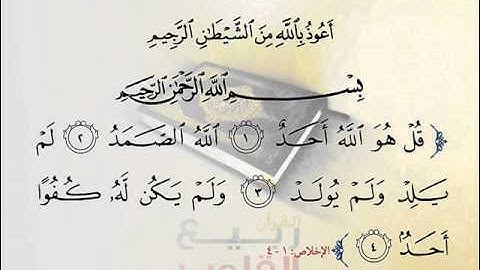 أَعُوذُ بِٱللَّهِ مِنَ ٱلشَّيْطَٰنِ ٱلرَّجِيمِ
بِسْمِ ٱللَّهِ ٱلرَّحْمَٰنِ ٱلرَّحِيمِ
﴿ قُلْ هُوَ ٱللَّهُ أَحَدٌ ١ ٱللَّهُ ٱلصَّمَدُ ٢ لَمْ
يَلِدْ وَلَمْ يُولَدْ ٣ وَلَمْ يَكُن لَّهُۥ كُفُوًا
أَحَدٌۢ ٤ ﴾ الإخلاص: ١ - ٤
القرآن
ربيع
القلوب